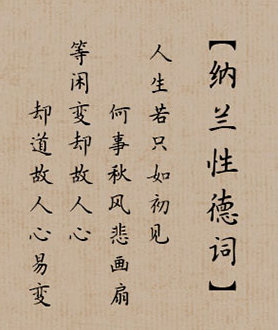 【纳兰性德词】
人生若只如初见
何事秋风悲画扇
等闲变却故人心
却道故人心易变